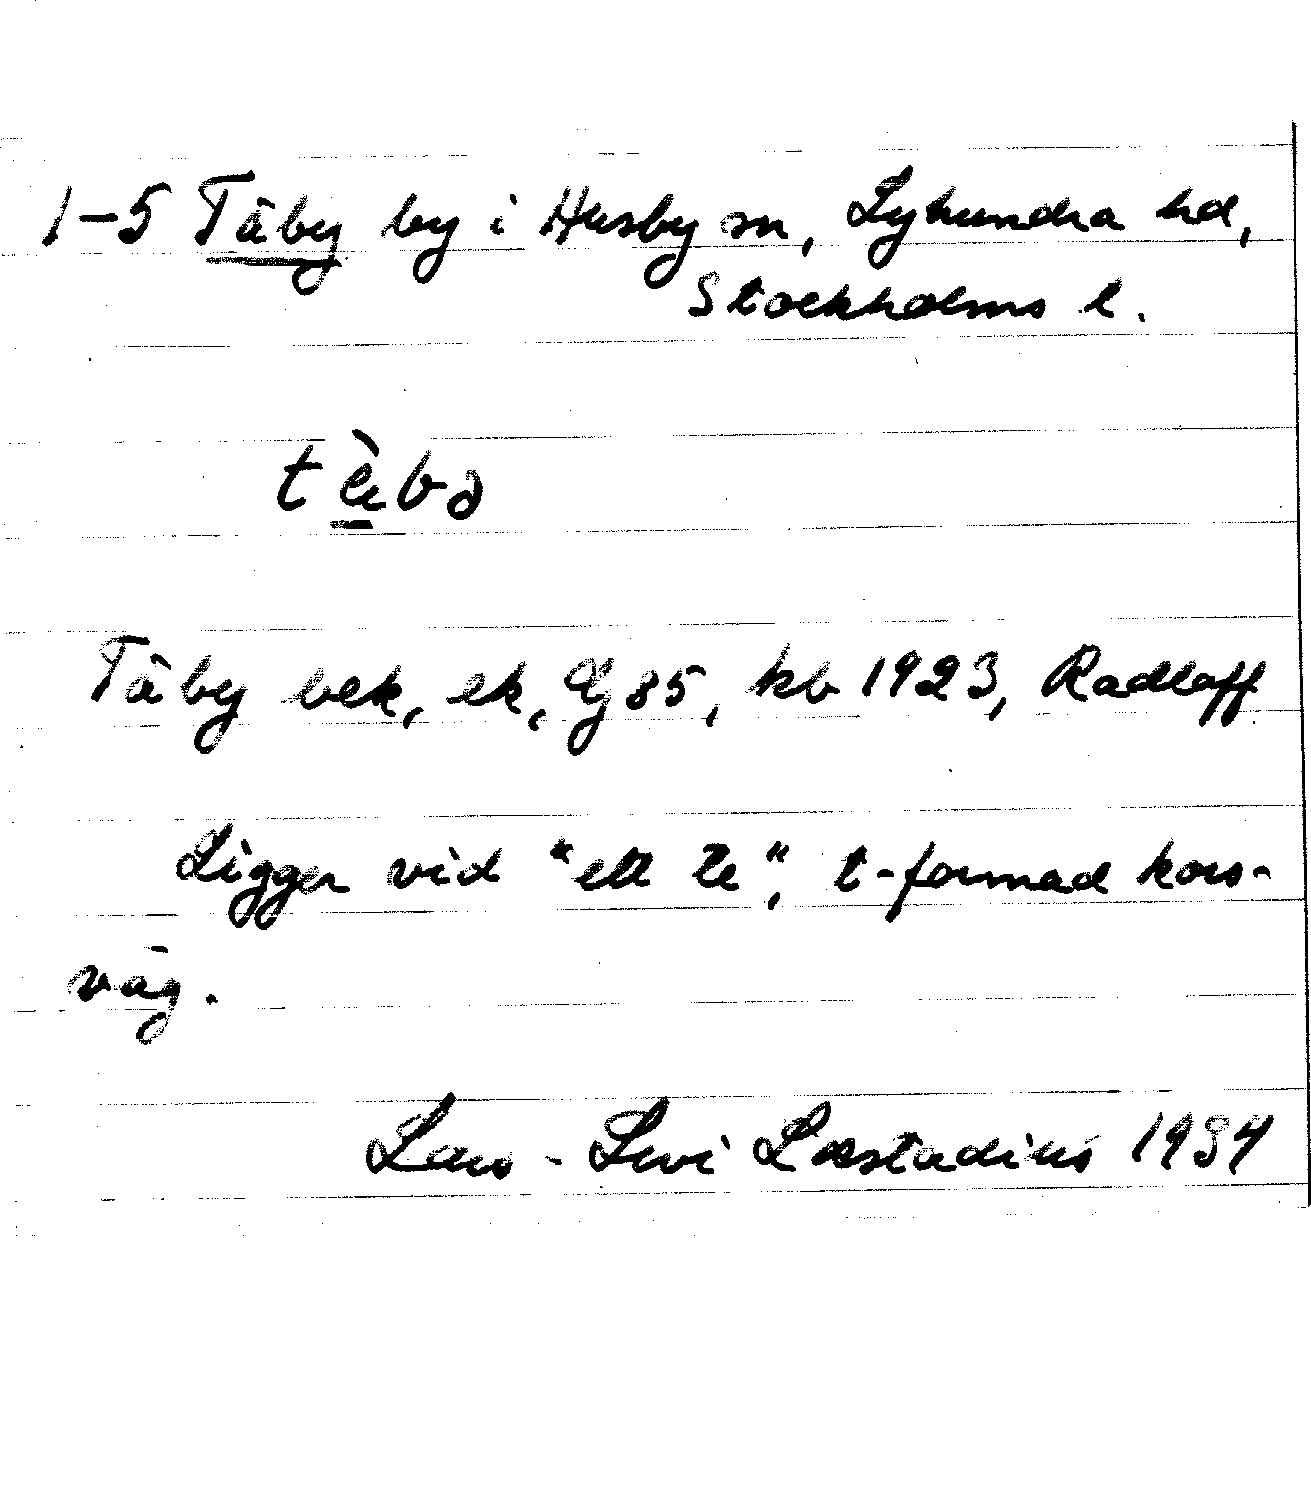 1-5 Täby by i Husby sn, Lyhundra hd,
Stockholms l.
tä̀bə
Täby bek, ek, Gj 85, kb 1923, Radloff
Ligger vid "ett Te", t-formad kors-
väg.
Lars-Levi Læstadius 1934